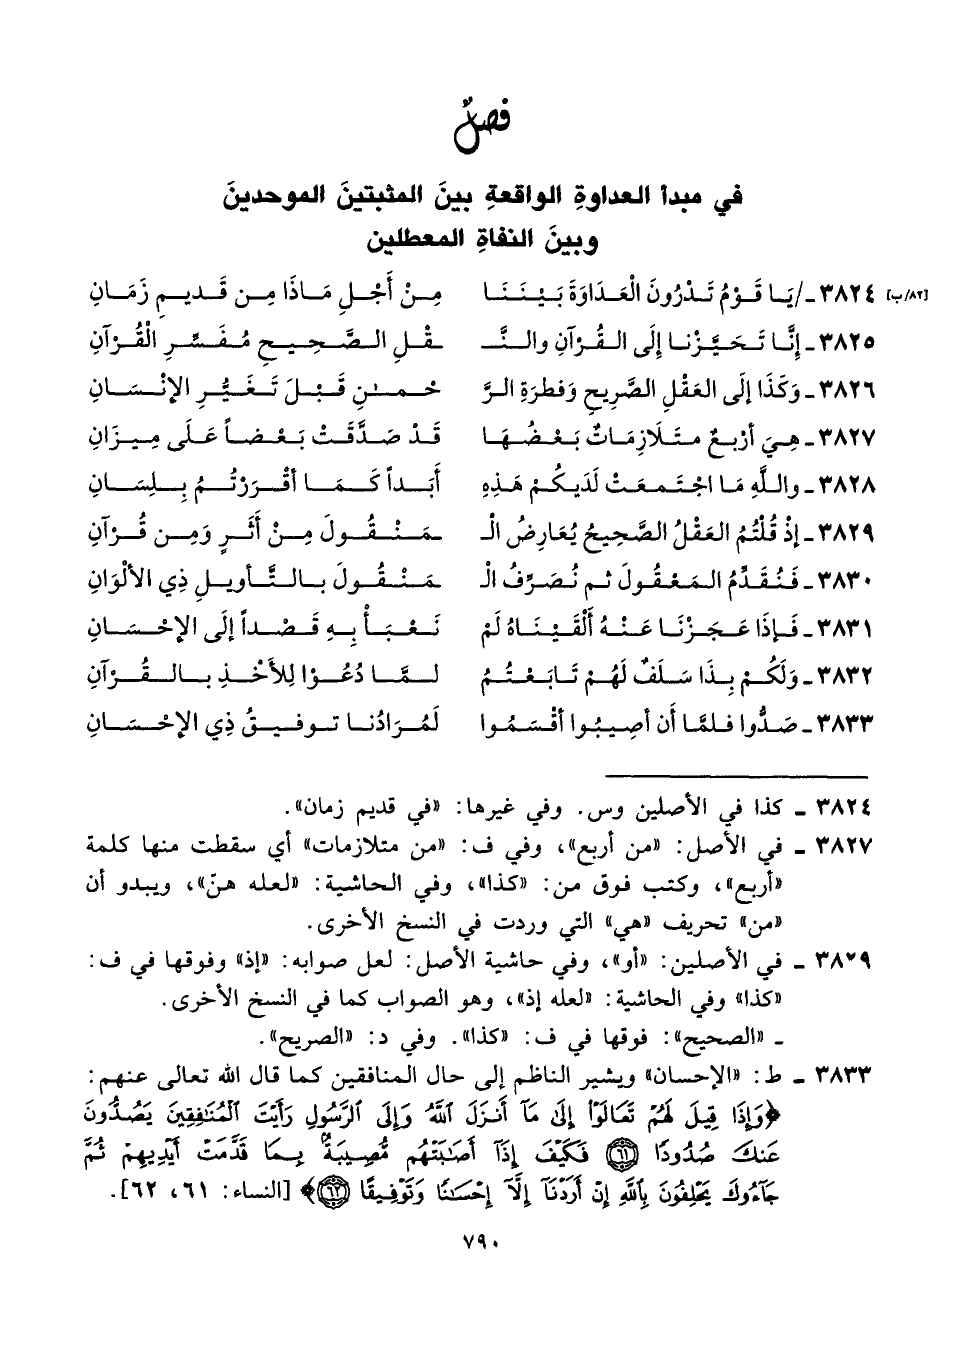 فصلٌ
في مبدأ العداوةِ الواقعةِ بينَ المثبتينَ الموحدينَ
وبينَ النفاةِ المعطلين
[٨٢/ب] ٣٨٢٤ ـ/يَا قَوْمُ تَدْرُونَ الْعَدَاوَةَ بَيْنَنَا مِنْ أَجْلِ مَاذَا مِن قَدِيمِ زَمَانِ
٣٨٢٥ ـ إِنَّا تَحَيَّزْنا إلَى القُرْآنِ والنَّـ ـقْلِ الصَّحِيحِ مُفَسِّرِ الْقُرْآنِ
٣٨٢٦ ـ وَكَذَا إلَى العَقْلِ الصَّرِيحِ وَفطرَةِ الرَّ حْمٰنِ قَبْلَ تَغَيُّرِ الإنْسَانِ
٣٨٢٧ ـ هِيَ أرْبعٌ متَلَازِمَاتٌ بَعْضُهَا قَدْ صَدَّقَتْ بَعْضاً عَلَى مِيزَانِ
٣٨٢٨ ـ واللَّهِ مَا اجْتمعَتْ لَدَيكُمْ هَذِهِ أَبَداً كَمَا أقْرَرْتُمُ بِلِسَانِ
٣٨٢٩ ـ إذْ قُلْتُمُ العَقْلُ الصَّحِيحُ يُعَارِضُ الْـ ـمَنْقُولَ مِنْ أَثَرٍ وَمِن قُرْآنِ
٣٨٣٠ ـ فَنُقَدِّمُ المَعْقُولَ ثم نُصَرِّفُ الْـ ـمَنْقُولَ بالتَّأويلِ ذِي الألْوَانِ
٣٨٣١ ـ فَإذَا عَجَزْنَا عَنْهُ أَلْقَيْنَاهُ لَمْ نَعْبَأْ بِهِ قَصْداً إلَى الإحْسَانِ
٣٨٣٢ ـ وَلَكُمْ بِذَا سَلَفٌ لَهُمْ تَابَعْتُمُ لَمَّا دُعُوْا لِلأَخْذِ بالقُرآنِ
٣٨٣٣ ـ صَدُّوا فلمَّا أن أصِيبُوا أقْسَمُوا لَمُرَادُنا توفيقُ ذِي الإحْسَانِ
٣٨٢٤ ـ كذا في الأصلين وس. وفي غيرها: «في قديم زمان».
٣٨٢٧ ـ في الأصل: «من أربع»، وفي ف: «من متلازمات» أي سقطت منها كلمة
«أربع»، وكتب فوق من: «كذا»، وفي الحاشية: «لعله هنّ»، ويبدو أن
«من» تحريف «هي» التي وردت في النسخ الأخرى.
٣٨٢٩ ـ في الأصلين: «أو»، وفي حاشية الأصل: لعل صوابه: «إذ» وفوقها في ف:
«كذا» وفي الحاشية: «لعله إذ»، وهو الصواب كما في النسخ الأخرى.
ـ «الصحيح»: فوقها في ف: «كذا». وفي د: «الصريح».
٣٨٣٣ ـ ط: «الإحسان» ويشير الناظم إلى حال المنافقين كما قال الله تعالى عنهم:
﴿وَإِذَا قِيلَ لَهُمْ تَعَالَوْا إِلَىٰ مَآ أَنزَلَ ٱللَّهُ وَإِلَى ٱلرَّسُولِ رَأَيْتَ ٱلْمُنَٰفِقِينَ يَصُدُّونَ
عَنكَ صُدُودًا ﴿٦١﴾ فَكَيْفَ إِذَآ أَصَٰبَتْهُم مُّصِيبَةٌۢ بِمَا قَدَّمَتْ أَيْدِيهِمْ ثُمَّ
جَآءُوكَ يَحْلِفُونَ بِٱللَّهِ إِنْ أَرَدْنَآ إِلَّآ إِحْسَٰنًا وَتَوْفِيقًا ﴿٦٢﴾﴾ [النساء: ٦١، ٦٢].
٧٩٠